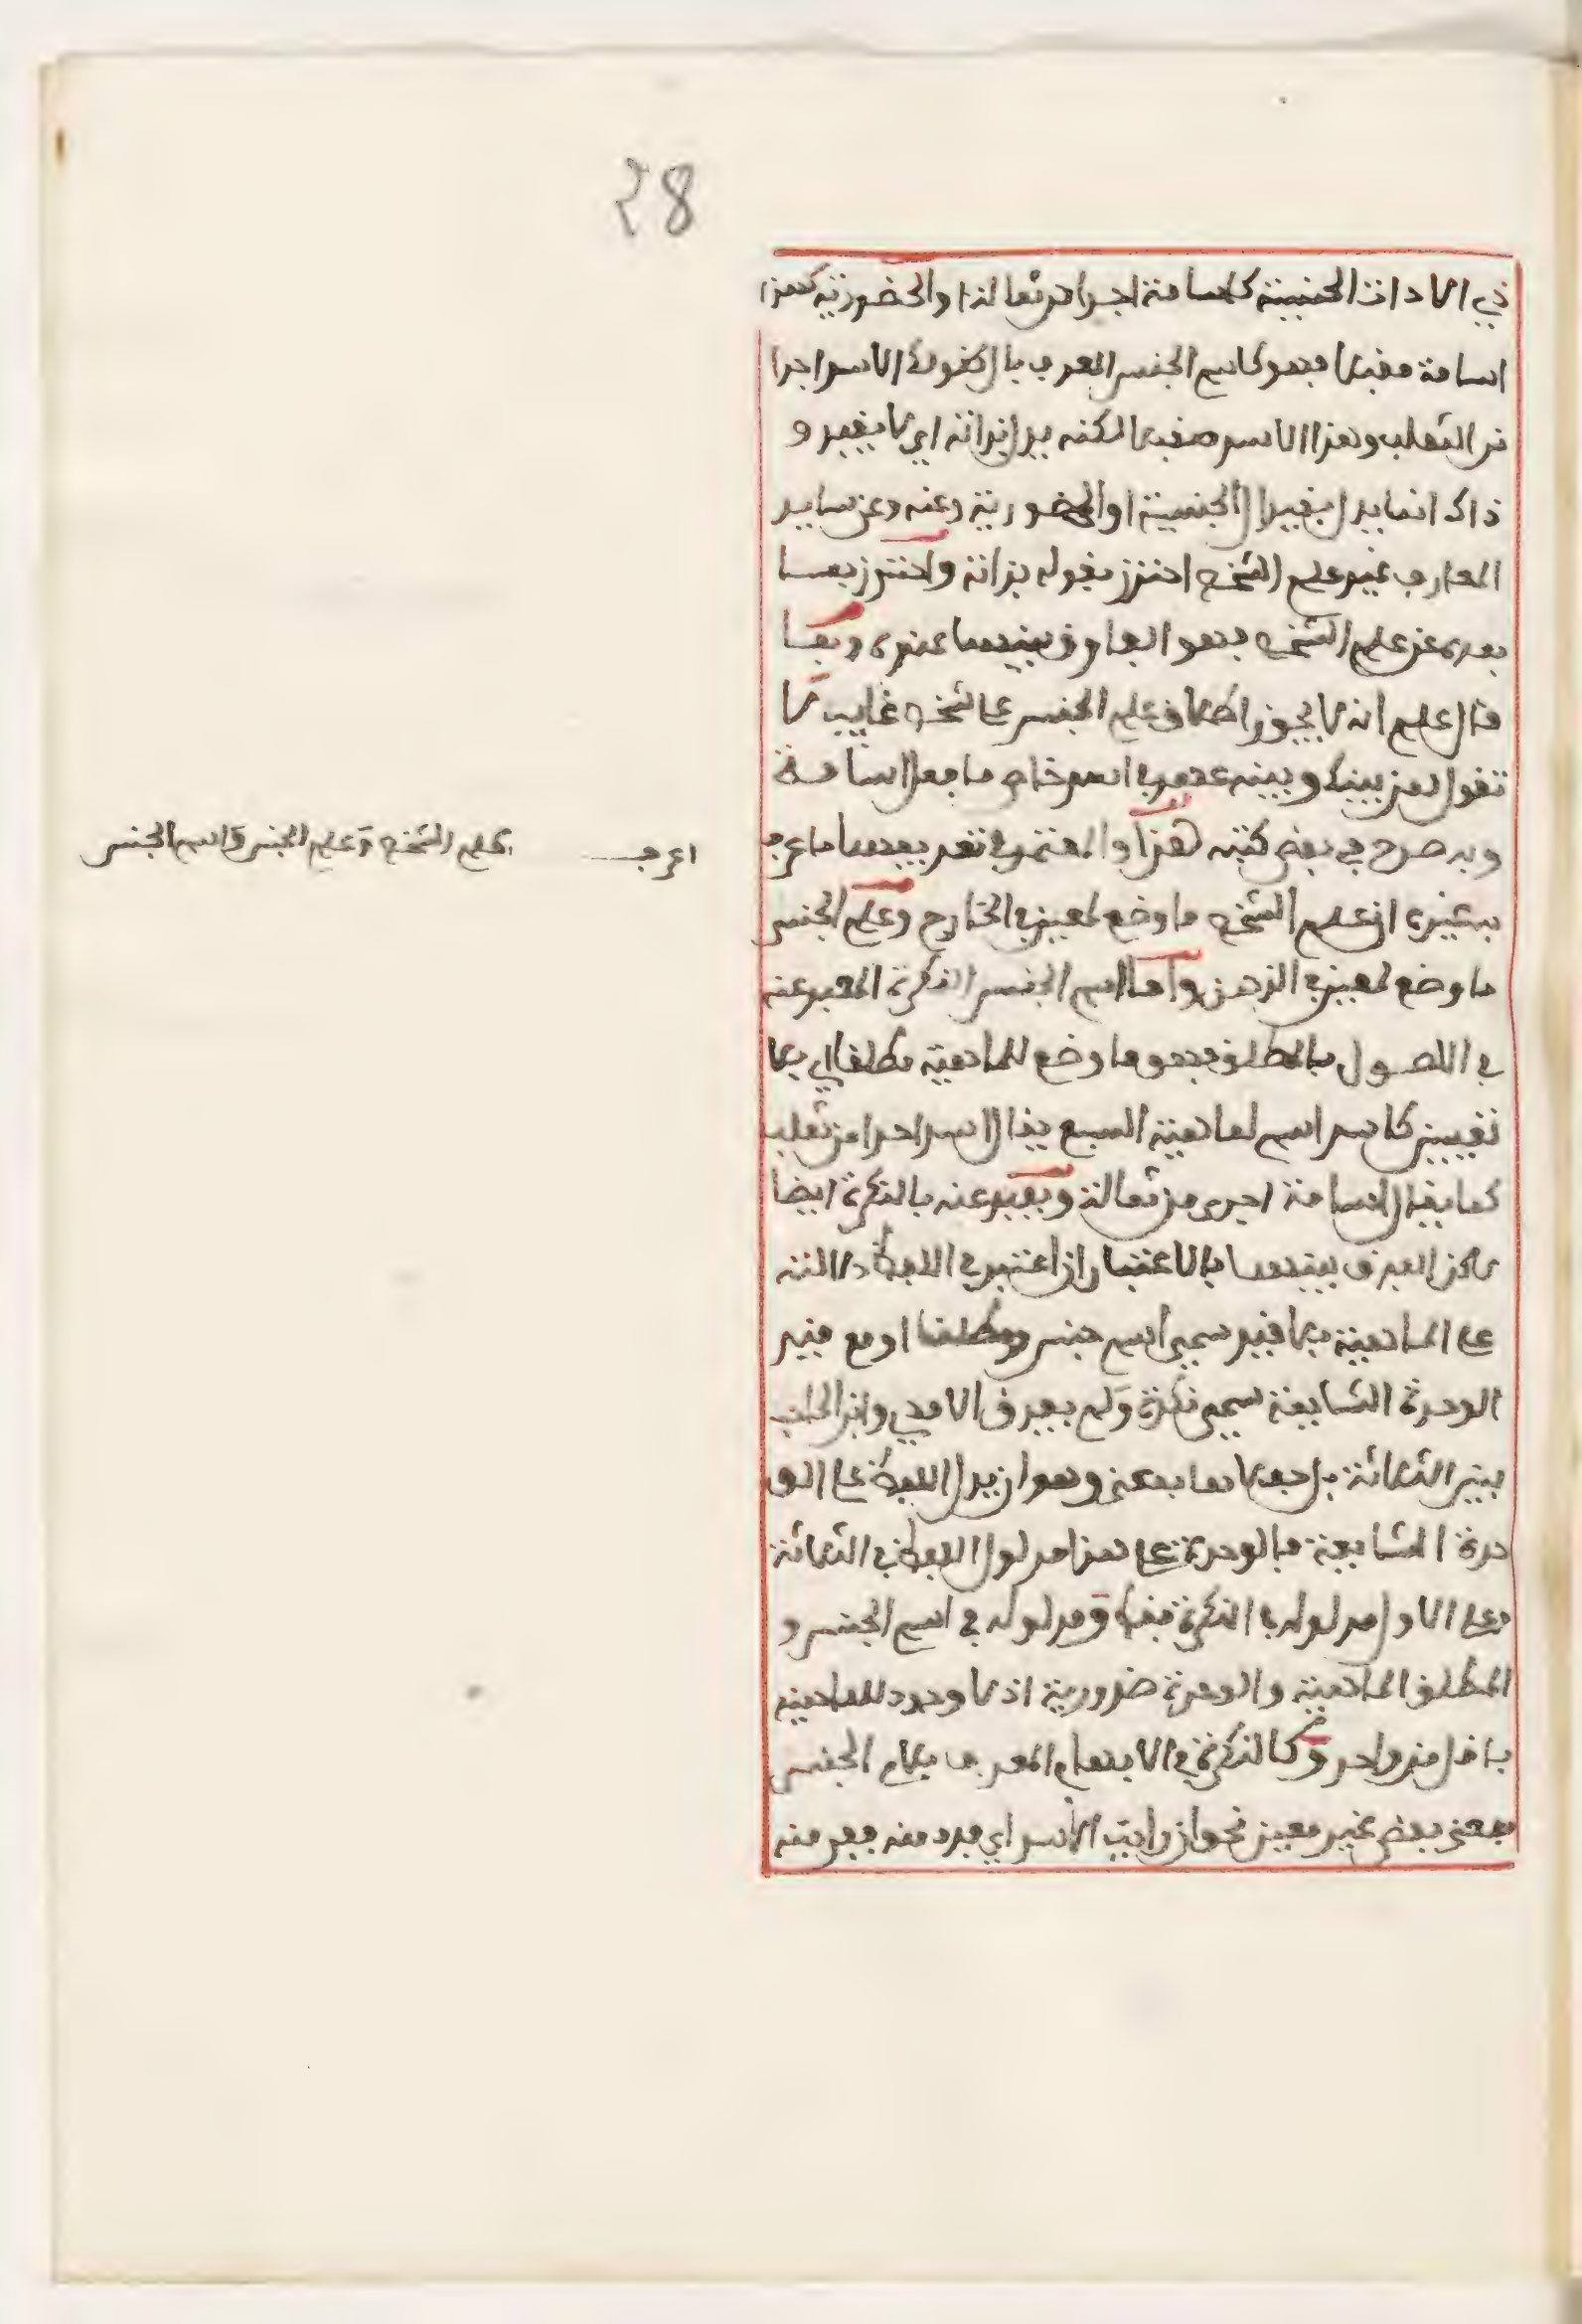 28
ذي الاداة الجنسية كاسامة اجرا من ثعالة او الحضورية كهذا
اسامة مقبلا فهو كاسم الجنس المعرف بال كقولك الاسد اجرا
من الثعلب وهذا الاسد مقبلا لكنه يدل بذاته اي لا بقيد و
ذاك انما يدل بقيد ال الجنسية او الحضورية وعنه وعن ساير
المعارف غير علم الشخص احترز بقوله بذاته واحترز بما
بعده عن علم الشخص فهو الفارق بينهما عنده
قال علم انه لا يجوز اطلاق علم الجنس على شخص غايب لا
تقول لمن بينك وبينه عهد في اسد خاص ما فعل اسامة
وبه صرح في بعض كتبه هذا والمعتمد في تعريفهما ما عرف
به غيره ان علم الشخص ما وضع لمعين في الخارج وعلم الجنس
ما وضع لمعين في الذهن واما اسم الجنس النكرة المعبر عنه
في الاصول بالمطلق فهو ما وضع للماهية مطلقا اي بلا
تعيين كاسد اسم لماهية السبع يقال اسد اجرا من ثعلب
كما يقال اسامة اجرى من ثعالة ويعبر عنه بالنكرة ايضا
لاكن الفرق بينهما بالاعتبار ان اعتبر في اللفظ دلالته
على الماهية بلا قيد سمي اسم جنس ومطلقا او مع قيد
الوحدة الشايعة سمي نكرة ولم يفرق الامدي وابن الحاجب
بين الثلاثة بل جعلاها بمعنى وهو ان يدل اللفظ على الو
حدة الشايعة فبالوحدة على هذا مدلول اللفظ في الثلاثة
وعلى الاول مدلوله بالنكرة فقط ومدلوله في اسم الجنس و
المطلق الماهية والوحدة ضرورية اذ لا وجود للماهية
باقل من واحد وكالنكرة في الابهام المعرف بلام الجنس
بمعنى بعض غير معين نحو ان رايت الاسد اي فردا منه ففر منه
اعرف علم الشخص وعلم الجنس واسم الجنس